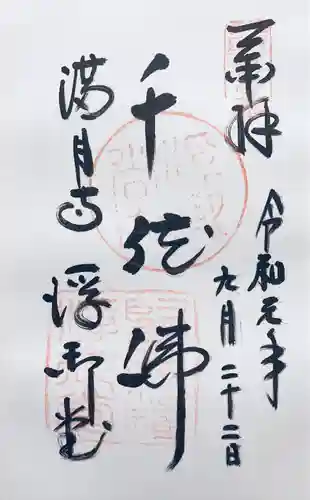 奉拝
令和元年
九月二十二日
千体佛
満月寺
浮御堂